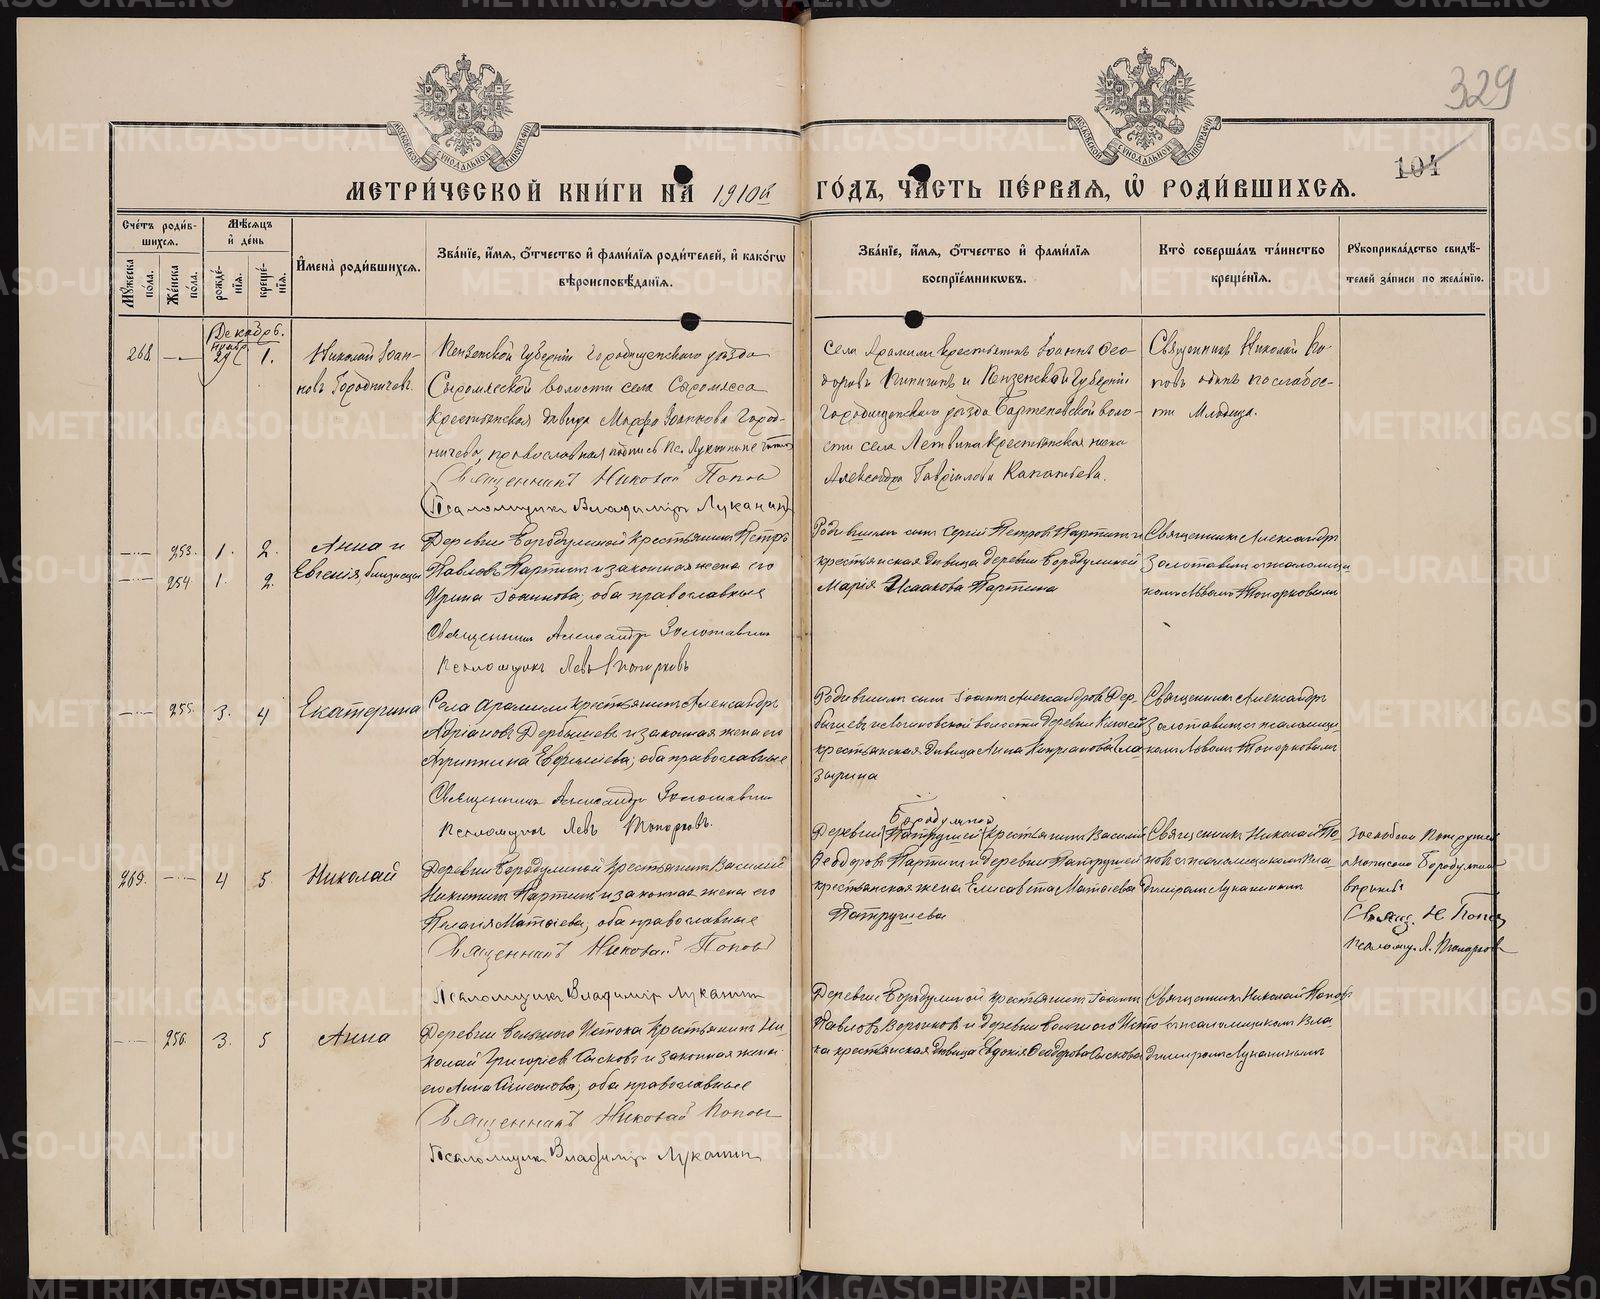 329
104
МОСКОВСКОЙ СУНОДАЛЬНОЙ ТИПОГРАФІИ
МОСКОВСКОЙ СУНОДАЛЬНОЙ ТИПОГРАФІИ
МЕТРИ́ЧЕСКОЙ КНИ́ГИ НА 1910й ГО́ДЪ, ЧА́СТЬ ПЕ́РВАѦ, Ѡ҆ РОДИ́ВШИХСѦ.
Сче́тъ роди́в-
шихсѧ.
Мꙋ́жеска по́ла.
Же́нска по́ла.
Мѣ́сѧцъ
и҆ де́нь
рожде́-
нїѧ.
креще́-
нїѧ.
И҆мена̀ роди́вшихсѧ.
Зва́нїе, и҆́мѧ, ѻ҆́тчество и҆ фами́лїѧ роди́телей, и҆ како́гѡ
вѣроисповѣ́данїѧ.
Зва́нїе, и҆́мѧ, ѻ҆́тчество и҆ фами́лїѧ
воспрїе́мникѡвъ.
Кто̀ соверша́лъ та́инство
креще́нїѧ.
Рꙋкоприкла́дство свидѣ́-
телей за́писи по жела́нїю.
Декабрь.
268. — 29 1. Николай Іоан-
новъ Городничевъ
Пензенской губерніи Городищенскаго уѣзда
Сыромясской волости села Сыромяса
крестьянская дѣвица Марфа Іоаннова Город-
ничева, православная
Священникъ Николай Поповъ
Псаломщикъ Владиміръ Луканинъ
Села Арамили крестьянинъ Іоаннъ Ѳео-
доровъ и Пензенской губерніи
Городищенскаго уѣзда волос-
сти села крестьянская жена
Александра Гавріилова
Священникъ Николай По-
повъ одинъ по слабос-
ти младенца.
— 253. 1. 2. Анна и
— 254. 1. 2. Евгенія, близнецы
Деревни Бородулиной крестьянинъ Петръ
Павловъ Партинъ и законная жена его
Ирина Іоаннова, оба православные
Священникъ Александръ Золотавинъ
Псаломщикъ Левъ Топорковъ
Родившихъ сынъ Сергій Петровъ Партинъ и
крестьянская дѣвица деревни Бородулиной
Марія Исаакова Партина
Священникъ Александръ
Золотавинъ с псаломщи-
комъ Львомъ Топорковымъ
— 255. 3. 4 Екатерина
Села Арамили крестьянинъ Александръ
Адріановъ Дербышевъ и законная жена его
Агриппина Евфиміева, оба православные
Священникъ Александръ Золотавинъ
Псаломщикъ Левъ Топорковъ.
Родившихъ сынъ Іоаннъ Александровъ Дер-
бышевъ и волости деревни
крестьянская дѣвица Анна Гла-
зырина
Священникъ Александръ
Золотавинъ с псаломщи-
комъ Львомъ Топорковымъ
269. — 4 5. Николай
Деревни Бородулиной крестьянинъ Василій
Никитинъ Партинъ и законная жена его
Пелагія Матѳіева, оба православные
Священникъ Николай Поповъ
Псаломщикъ Владиміръ Луканинъ
Бородулиной
Деревни (Патрушей) крестьянинъ Василій
Ѳеодоровъ Партинъ и деревни Патрушей
крестьянская жена Елисавета Матѳіева
Патрушева
Священникъ Николай По-
повъ с псаломщикомъ Вла-
диміромъ Луканинымъ
Патрушей
Бородулиной
вѣрно.
Свящ. Н. Поповъ
Псаломщ. Л. Топорковъ
— 256. 3. 5 Анна
Деревни Большого Истока крестьянинъ Ни-
колай Григоріевъ Сысковъ и законная жена
его Анна Симеонова, оба православные
Священникъ Николай Поповъ
Псаломщикъ Владиміръ Луканинъ
Деревни Бородулиной крестьянинъ Іоаннъ
Павловъ Вороновъ и деревни Большого Исто-
ка крестьянская дѣвица Евдокія Ѳеодорова Сыскова
Священникъ Николай Поповъ
с псаломщикомъ Вла-
диміромъ Луканинымъ
METRIKI.GASO-URAL.RU